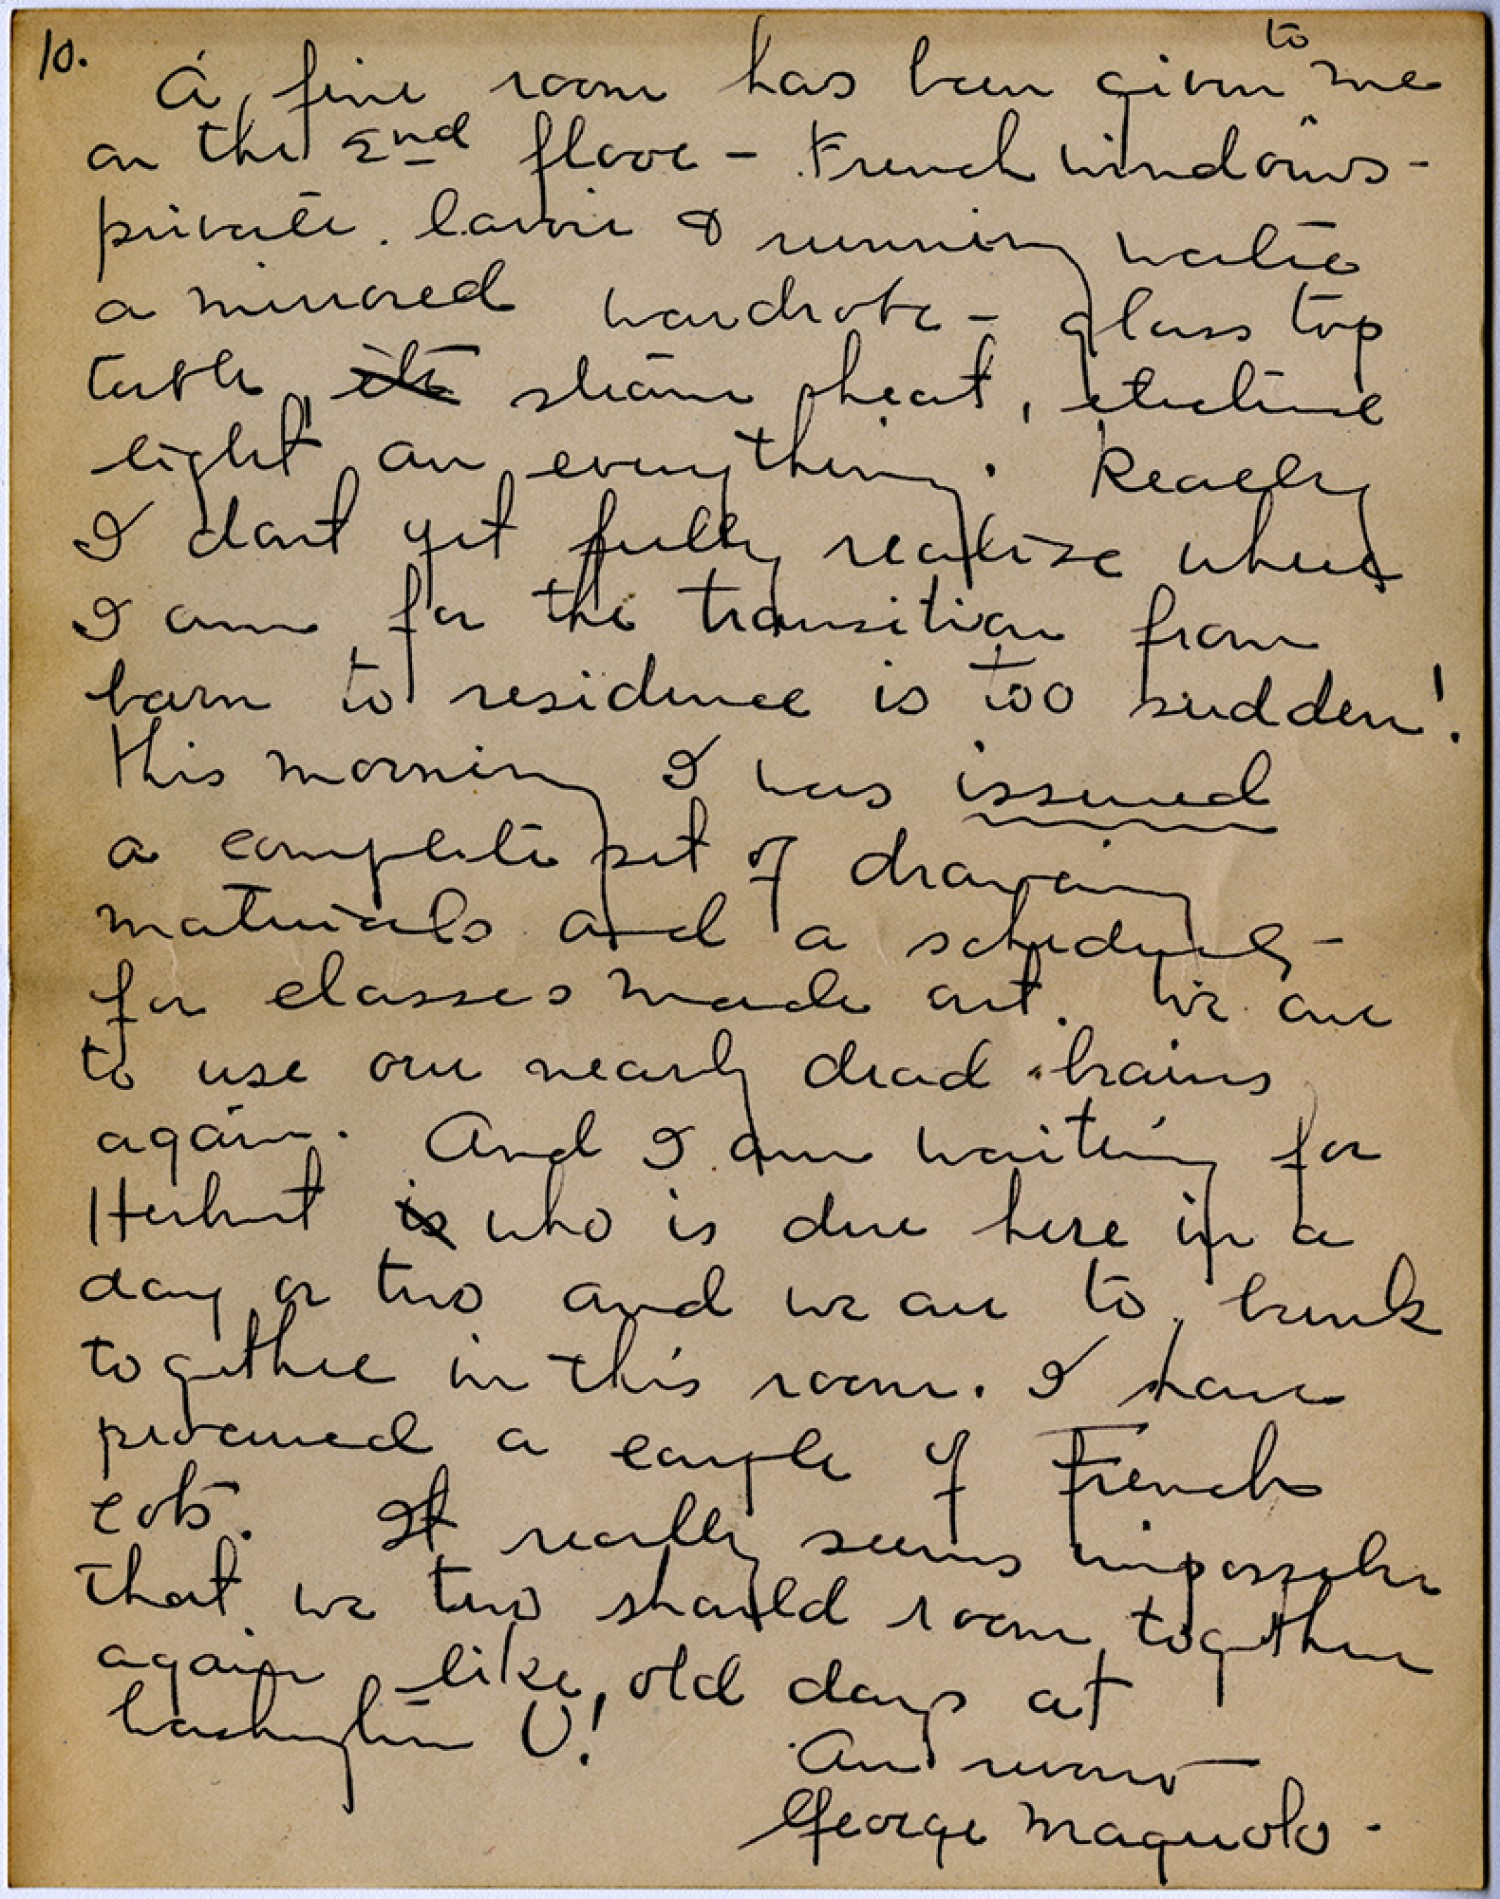 10.
A fine room has been given to me
on the 2nd floor - French windows -
private lavoie & running water
a mirrored wardrobe - glass top
table, etc steam heat, electric
light an everything. Really
I dont yet fully realize where
I am for the transition from
barn to residence is too sudden!
This morning I was issued
a complete set of drawing
materials and a schedule -
for classes made out. We are
to use our nearly dead brains
again. And I am waiting for
Herbert is who is due here in a
day or two and we are to bunk
together in this room. I have
procured a couple of French
cots. It really seems impossible
that we two should room together
again like old days at
Washington U!
Au revoir -
George Magnolo -